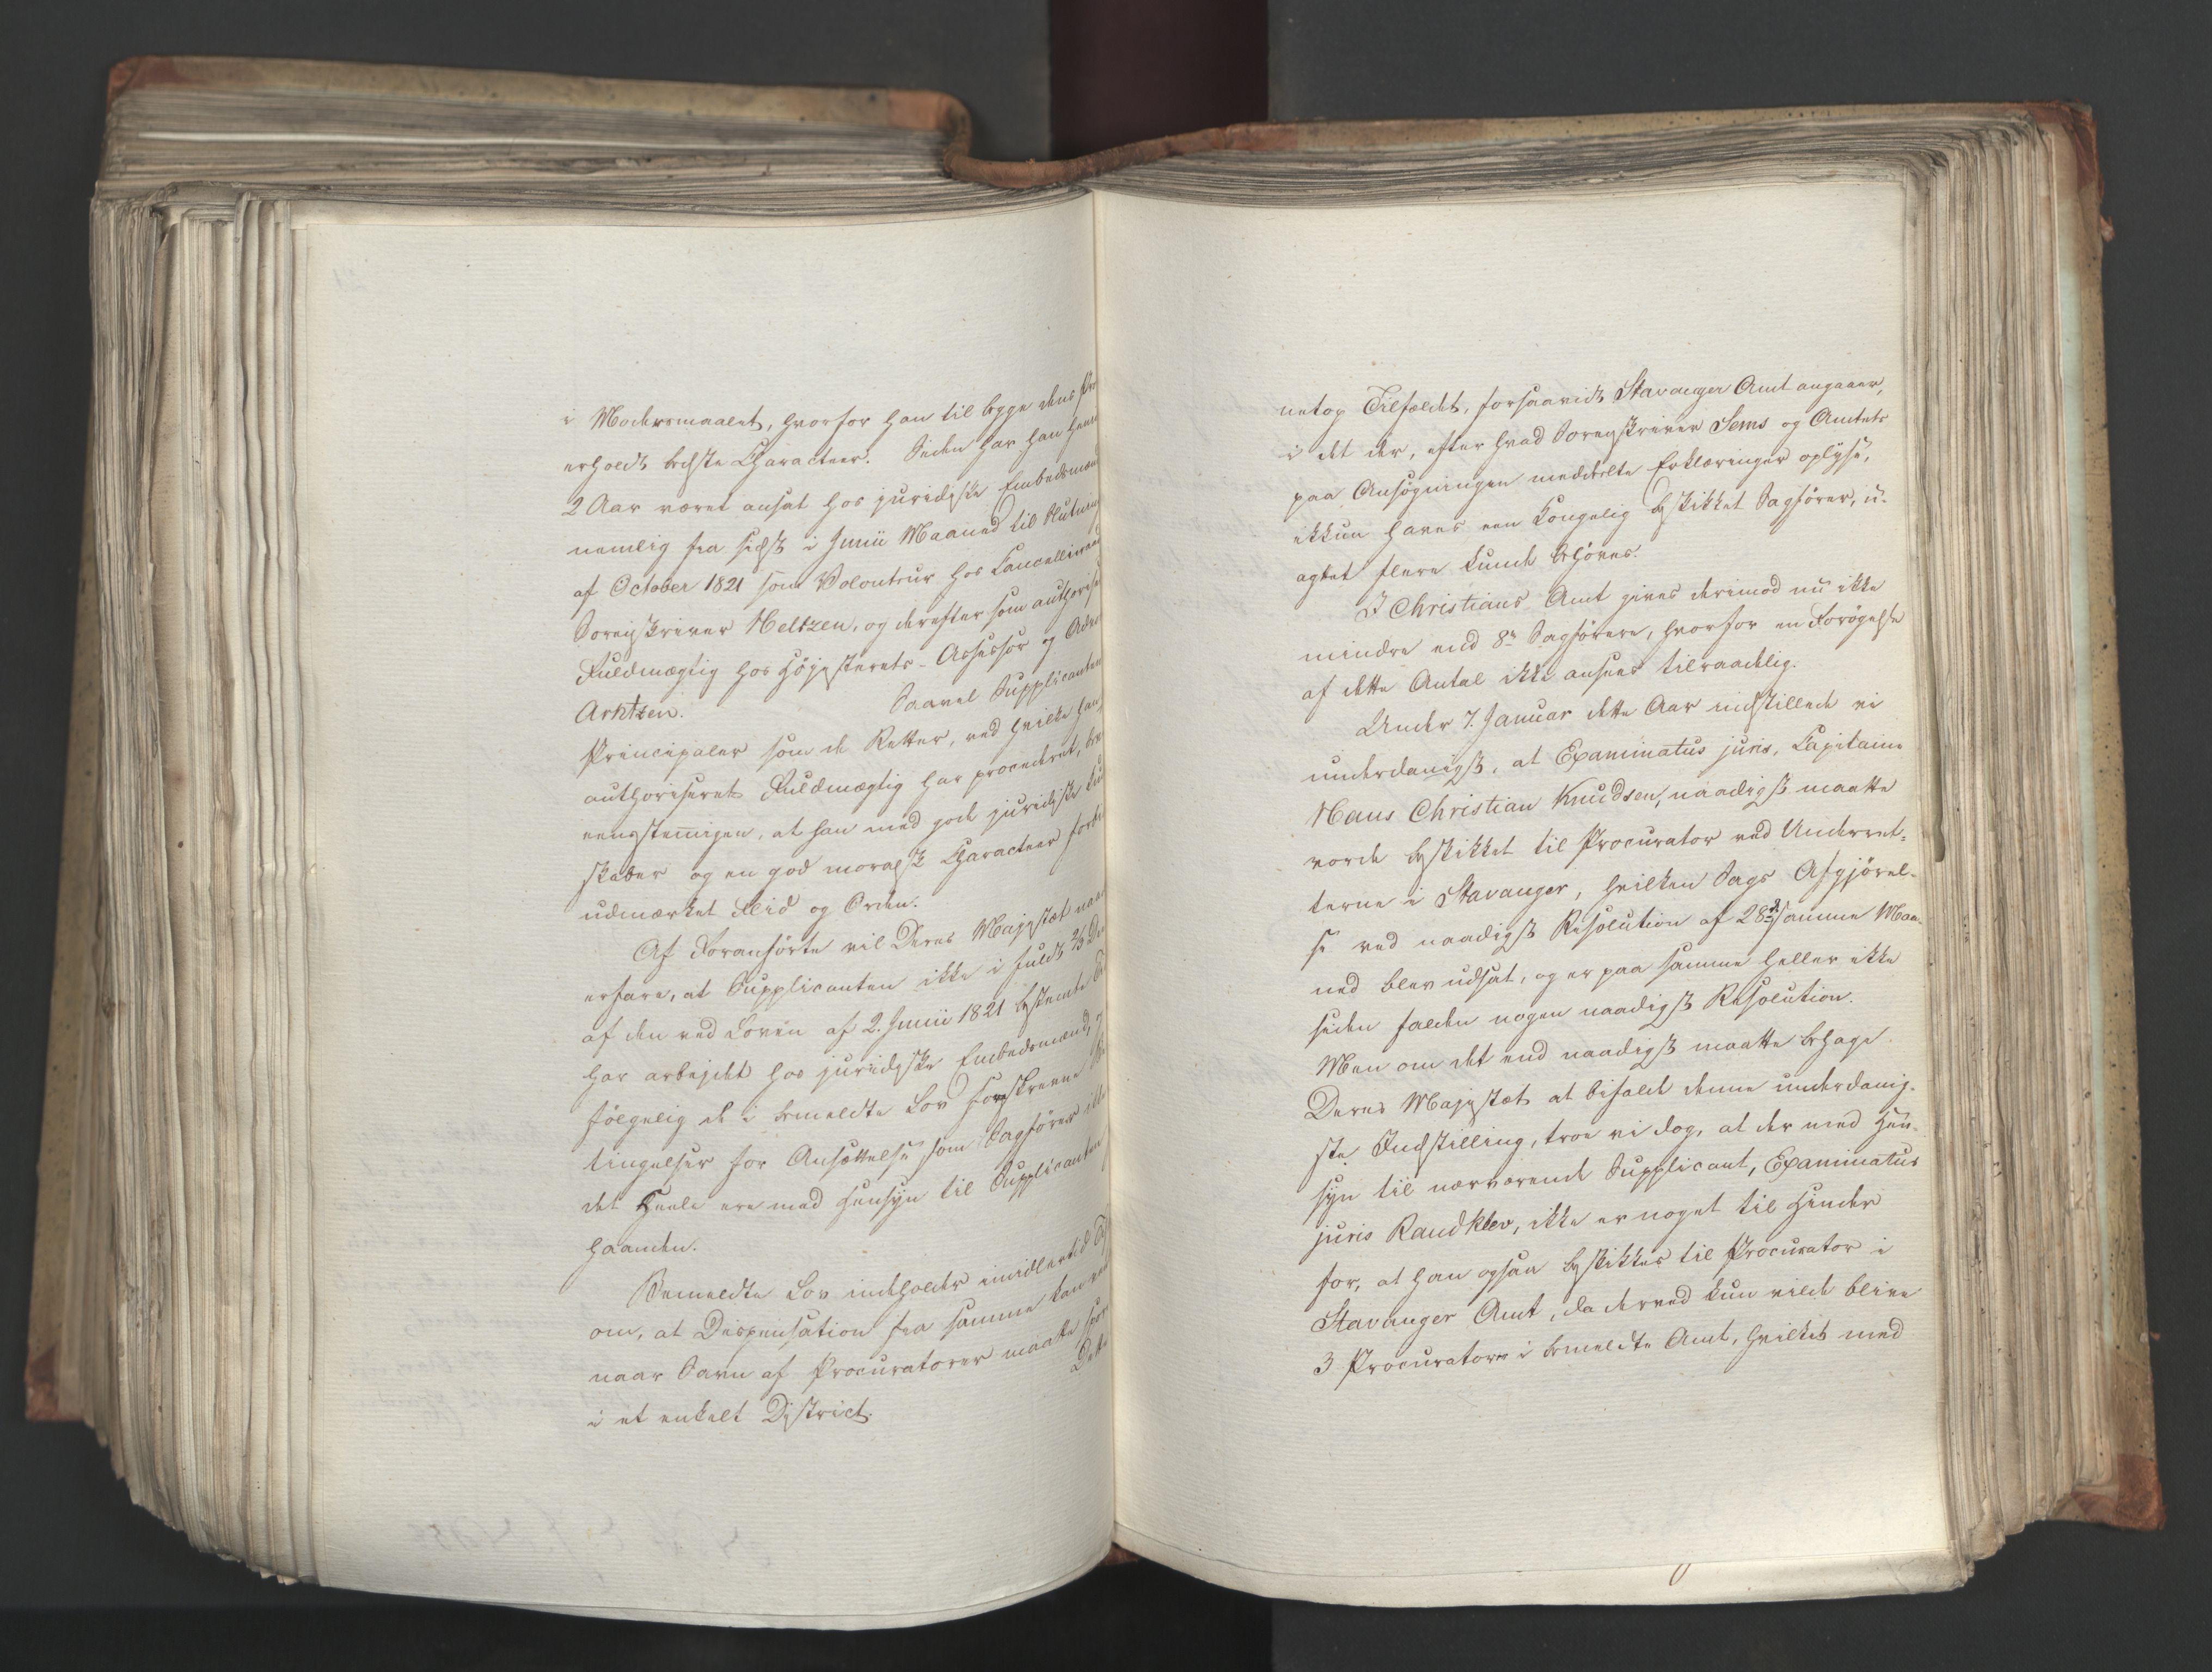 i Modersmaalet, hvorfor han til begge dens
erholdt bedste Characteer. Siden har han
2 Aar været ansat hos juridiske Embedsmænd
nemlig fra sidst i Junii Maaned til Slutning
af October 1821 som Volonteur hos Cancelliraad
Sorenskriver Neltzen, og derefter som authorise
Fuldmægtig hos Høyesterets-Assessor og
Arntzen. Saavel Supplicanten
Principaler som de Retter, ved hvilke han
authoriseret Fuldmægtig har procederet,
eenstemmigen, at han med gode juridiske
skaber og en god moralsk Characteer
udmærket Flid og Orden.
Af Foranførte vil Deres Majestæt
erfare, at Supplicanten ikke i fuldt 2/3
af den ved Loven af 2. Junii 1821 bestemte
har arbejdet hos juridiske Embedsmænd,
følgelig de i bemeldte Lov foreskrevne
tingelser for Ansættelse som Sagfører
det Heele ere med Hensyn til Supplicanten
haanden.
Bemeldte Lov indeholder imidlertid
om, at Dispensation fra samme kan
naar Savn af Procuratorer maatte
i et enkelt District. Dette
netop Tilfældet, forsaavidt Stavanger Amt angaaer,
i det der, efter hvad Sorenskriver Sems og Amtets
paa Ansøgningen meddeelte Erklæringer oplyse,
ikkun haves een Kongelig beskikket Sagfører, u-
agtet flere kunde behøves.
I Christians Amt gives derimod nu ikke
mindre end 8te Sagførere, hvorfor en Forøgelse
af dette Antal ikke ansees tilraadelig.
Under 7. Januar dette Aar indstillede vi
underdanigst, at Examinatus juris, Capitaine
Hans Christian Knudsen, naadigst maatte
vorde beskikket til Procurator ved Underret-
terne i Stavanger, hvilken Sags Afgjørel-
se ved naadigst Resolution af 28de samme Maa-
ned blev udsat, og er paa samme heller ikke
siden falden nogen naadigst Resolution.
Men om det end naadigst maatte behage
Deres Majestæt at bifalde denne underdanig-
ste Indstilling, troe vi dog, at der med Hen-
syn til nærværende Supplicant, Examinatus
juris Randklev, ikke er noget til Hinder
for, at han ogsaa beskikkes til Procurator i
Stavanger Amt, da derved kun vilde blive
3 Procuratorer i bemeldte Amt, hvilket med